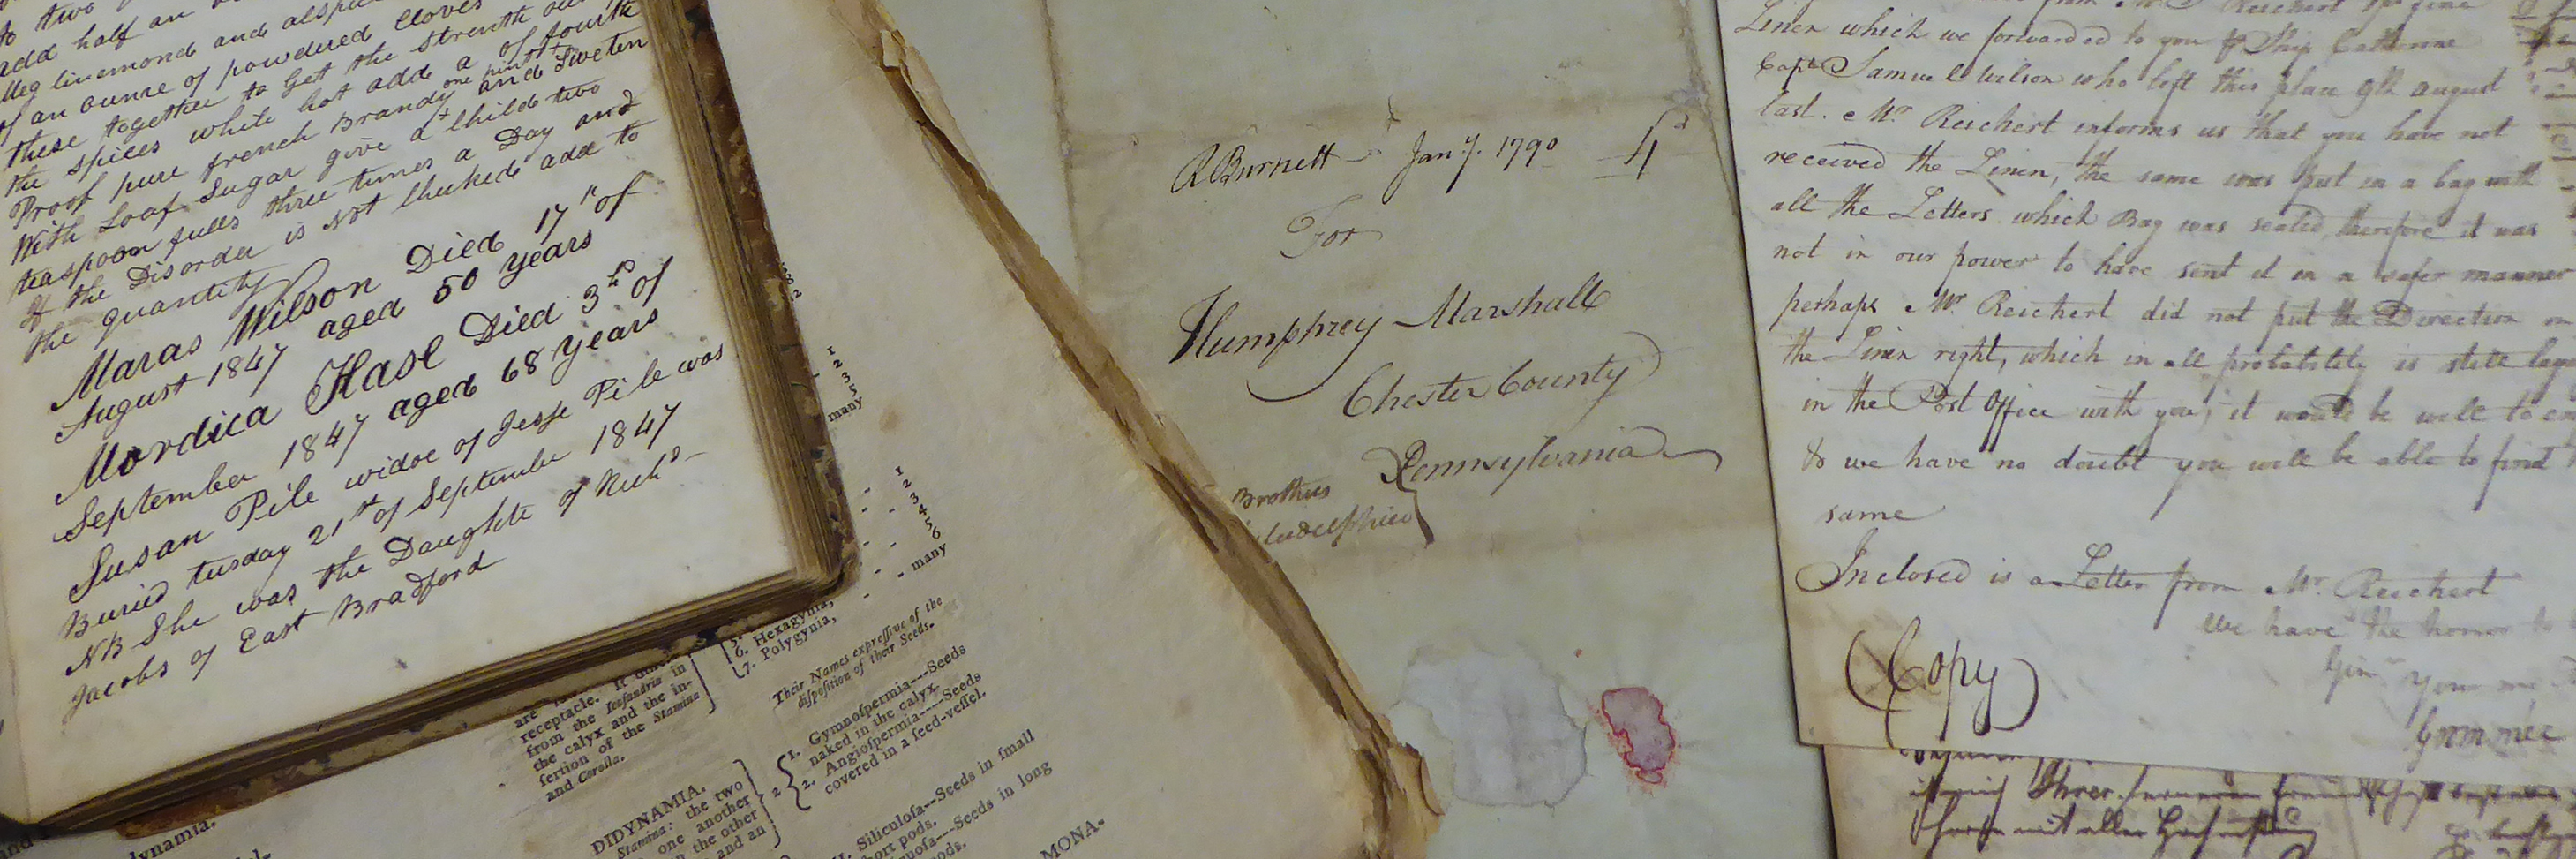 to two
add half an
Meg linemond and alspice
of an ounce of powdered cloves
these together to Get the strenth out
the spices while hot add a of fourth
one pint
Proof pure french Brandy and Sweten
With Loaf Sugar give a child two
teaspoon fulls three times a Day and
If the Disorder is not checked add to
the quantity
Maras Wilson Died 17th of
August 1847 aged 50 years
Mordica Hasl Died 3th of
September 1847 aged 68 years
Susan Pile widoe of Jesse Pile was
Buried tusday 21st of September 1847
NB She was the Daughte of Richd
Jacobs of East Bradford
1
2
3
5
many
1
2
3
4
5
6
many
6. Hexagynia,
7. Polygynia,
Their Names expreſſive of the
diſpoſition of their Seeds.
1. Gymnoſpermia---Seeds
naked in the calyx.
2. Angioſpermia----Seeds
covered in a ſeed-veſſel.
Siliculoſa--Seeds in ſmall
pods.
Seeds in long
pods.
MONA-
are
receptacle. It
from the Icoſandria in
the calyx and the in-
ſertion of the Stamina
and Corolla.
DIDYNAMIA.
Stamina: the two
one another
the other
and an
dynamia.
R Barnett Jany. 1790 4d
For
Humphrey Marshall
Chester County
Pennsylvania
Brothers
from Mr Reichert fine
Linen which we forwarded to you p Ship Catherine
Capt Samuel Wilson who left this place 9th august
last. Mr Reichert informs us that you have not
received the Linen, the same was put in a bag with
all the Letters which Bag was sealed, therefore it was
not in our power to have sent it in a safer manner
perhaps Mr. Reichert did not put the Direction on
the Linen right, which in all probability is still
in the Post Office with you, it would be well to
& we have no doubt you will be able to find
same
Inclosed is a Letter from Mr. Reichert
We have the honor to
Copy